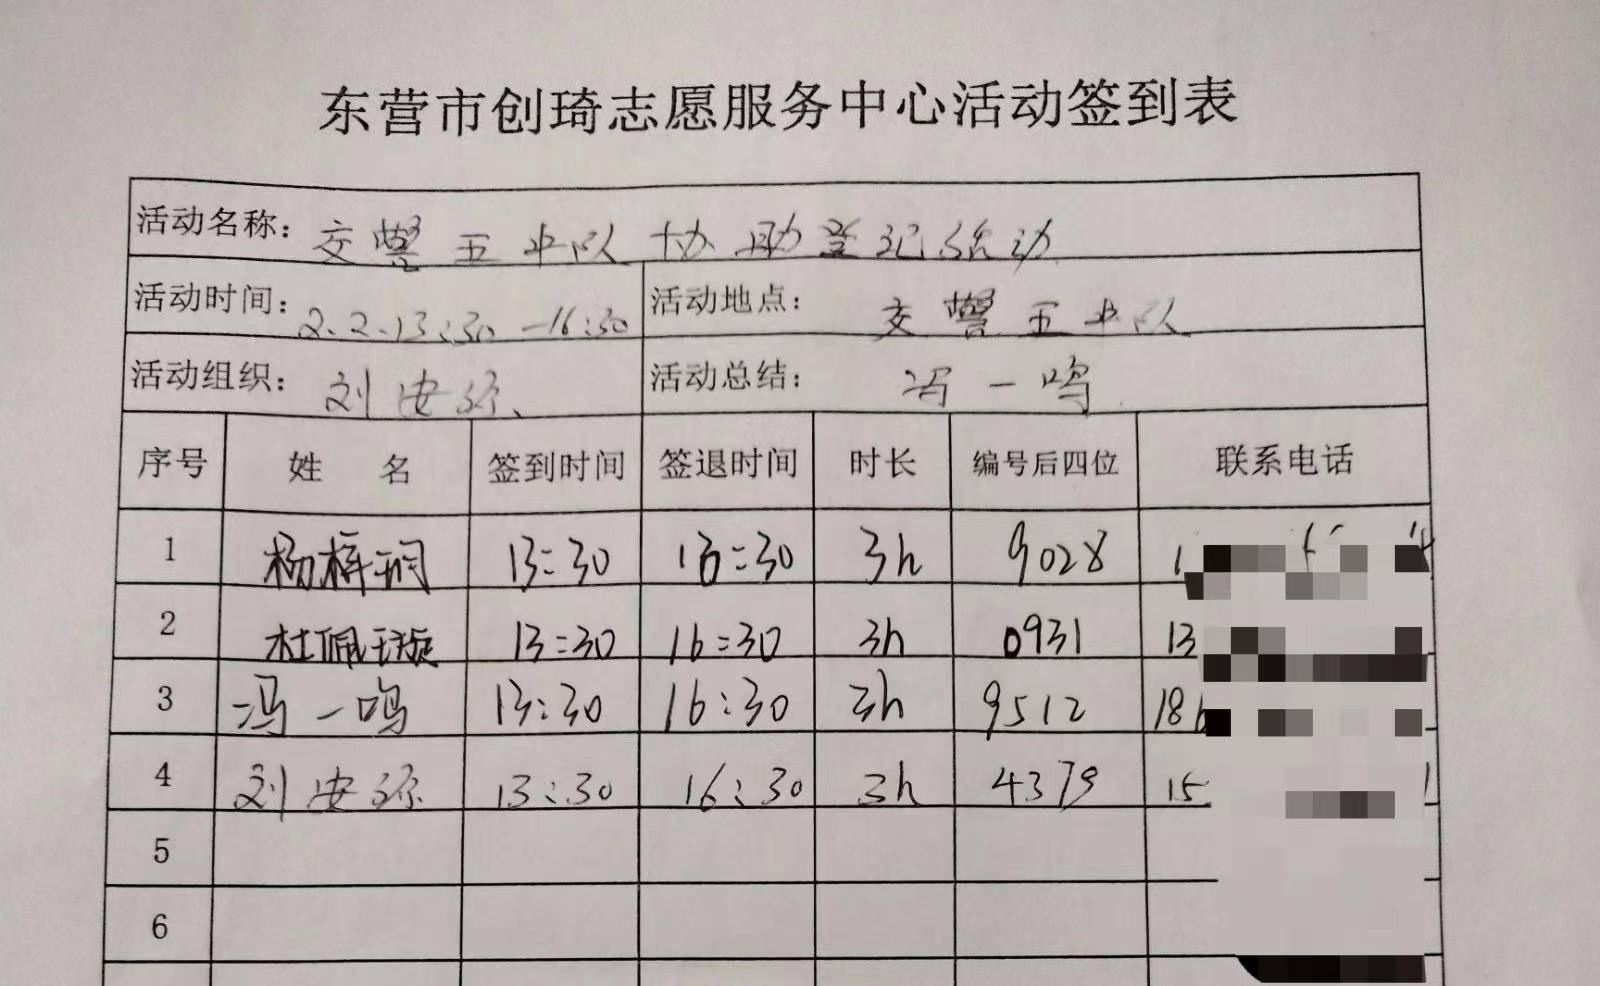 东营市创琦志愿服务中心活动签到表
活动名称: 交警五中队协助登记活动
活动时间: 2.2.13:30-16:30 活动地点: 交警五中队
活动组织: 刘安 活动总结: 冯一鸣
序号 姓名 签到时间 签退时间 时长 编号后四位 联系电话
1 杨梓玥 13:30 16:30 3h 9028 1
2 杜佩璇 13:30 16:30 3h 0931 13
3 冯一鸣 13:30 16:30 3h 9512 18
4 刘安 13:30 16:30 3h 4379 15
5
6